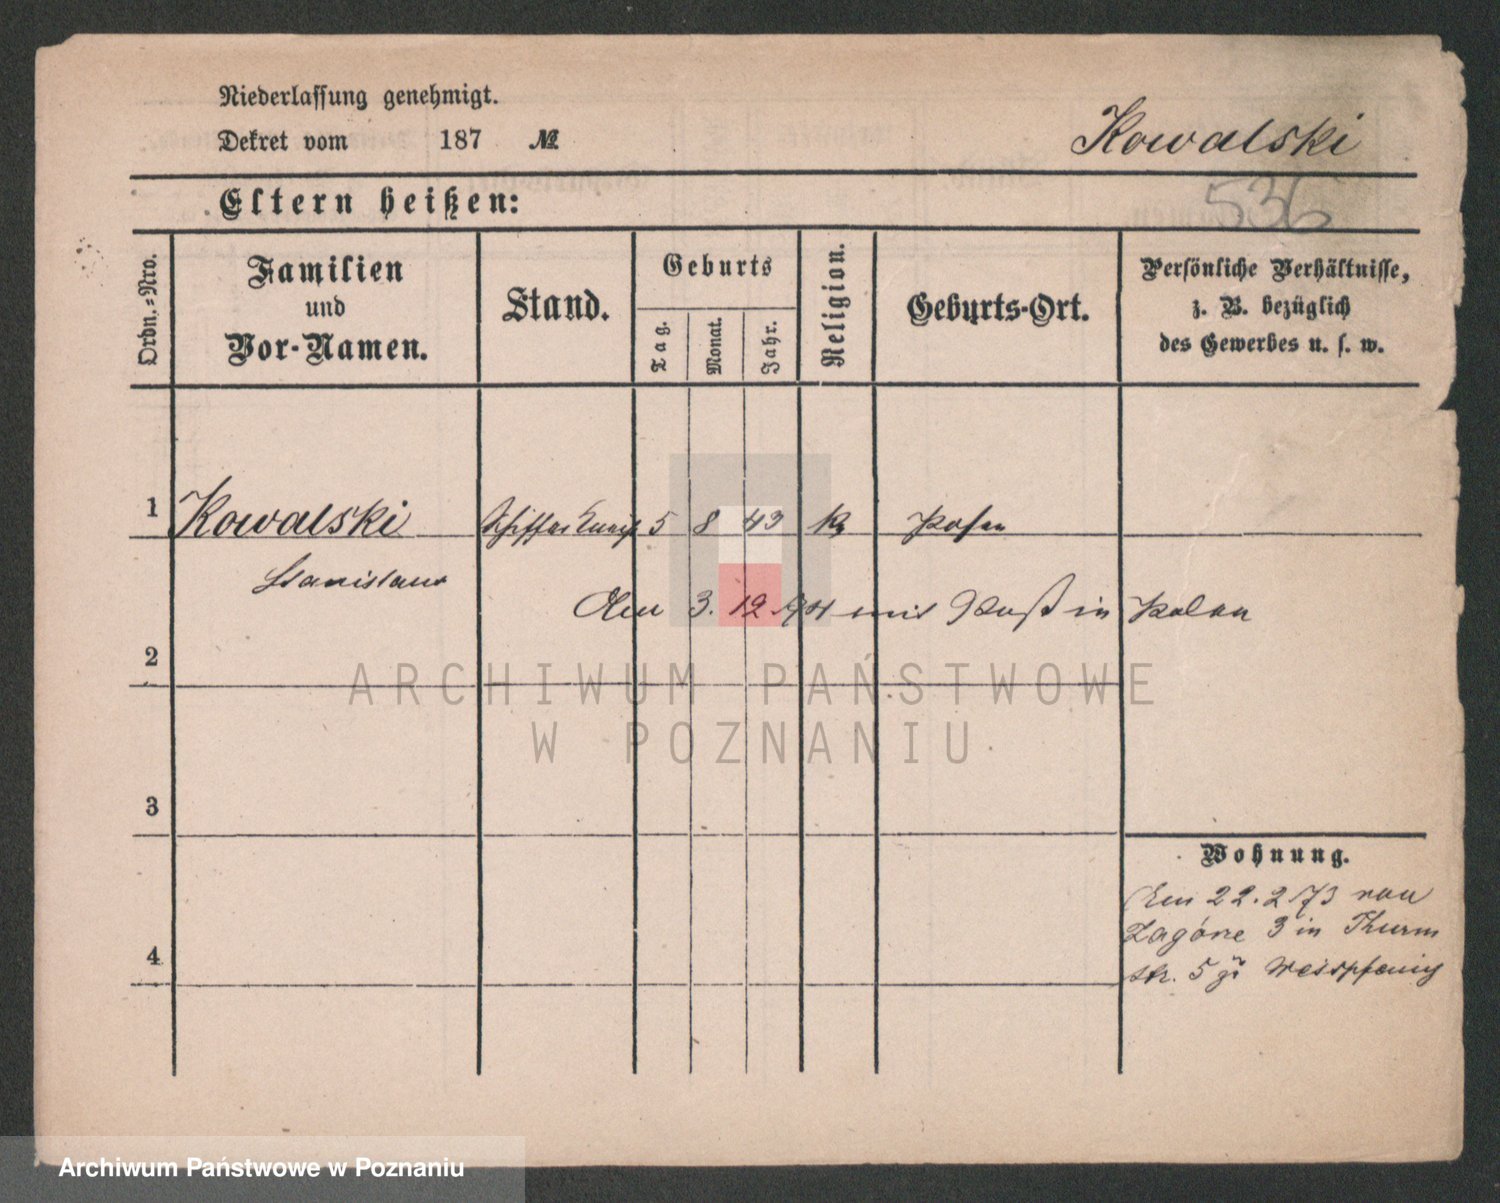 Niederlassung genehmigt.
Dekret vom 187 №
Kowalski
536
Eltern heißen:
Ordn.-Nro.
Familien
und
Vor-Namen.
Stand.
Geburts
Tag.
Monat.
Jahr.
Religion.
Geburts-Ort.
Persönliche Verhältnisse,
z. B. bezüglich
des Gewerbes u. s. w.
1 Kowalski 5 8 43 Posen
Stanislaus
3. 12 mit Paß in Polen
2
ARCHIWUM PAŃSTWOWE
W POZNANIU
3
Wohnung.
22.2 73 von
Zagórze 3 in Thurm
str. 5 zu
4
Archiwum Państwowe w Poznaniu